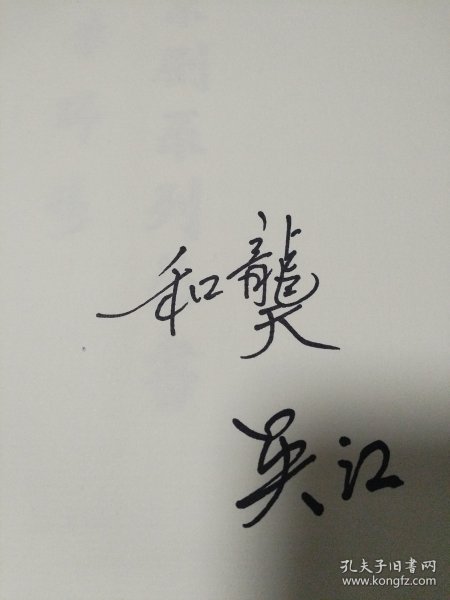 和龑
吴江
孔夫子旧书网
www.kongfz.com